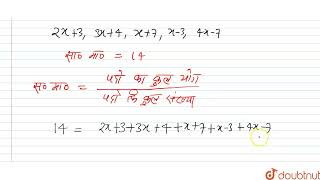 2x+3, 3x+4, x+7, x-3, 4x-7
स० मा० = 14
स० मा० = पदों का कुल योग
पदों कि कुल संख्या
14 = 2x+3+3x+4+x+7+x-3+4x-7
doubtnut